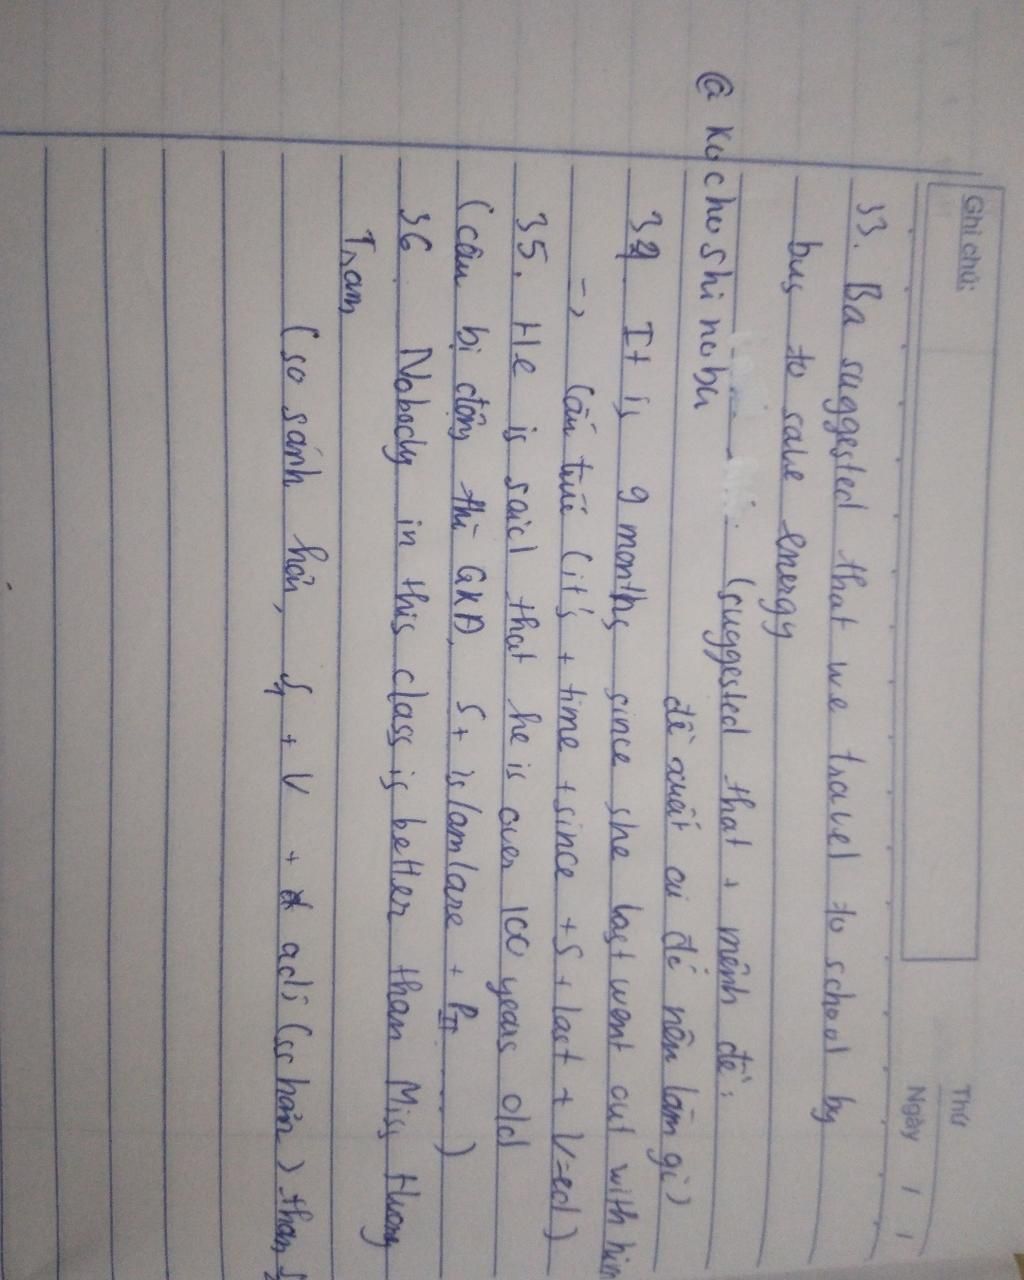 Ghi chú:
Thứ
Ngày / /
33. Ba suggested that we travel to school by
bus to save energy
(suggested that + mệnh đề:
@ kuchushinobu
đề xuất ai đó nên làm gì)
34. It is 9 months since she last went out with him
=> Cấu trúc (it's + time + since + S + last + V-ed)
35. He is said that he is over 100 years old
(câu bị động thì QKĐ S + is/am/are + PII ....)
36. Nobody in this class is better than Miss Huong
Tram
(so sánh hơn, S1 + V + adj (ss hơn) than S